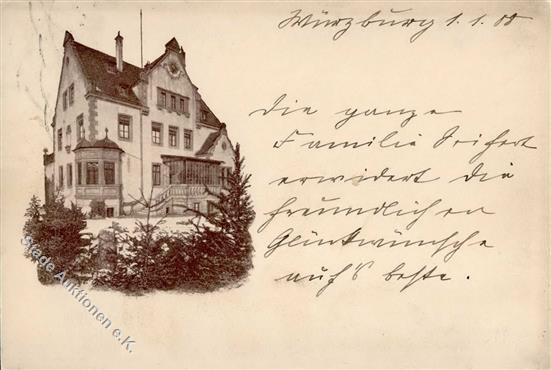 Würzburg 1.1.08
Die ganze
Familie Seifert
erwidert die
freundlichen
Glückwünsche
auf's beste.
Städte Auktionen e.K.